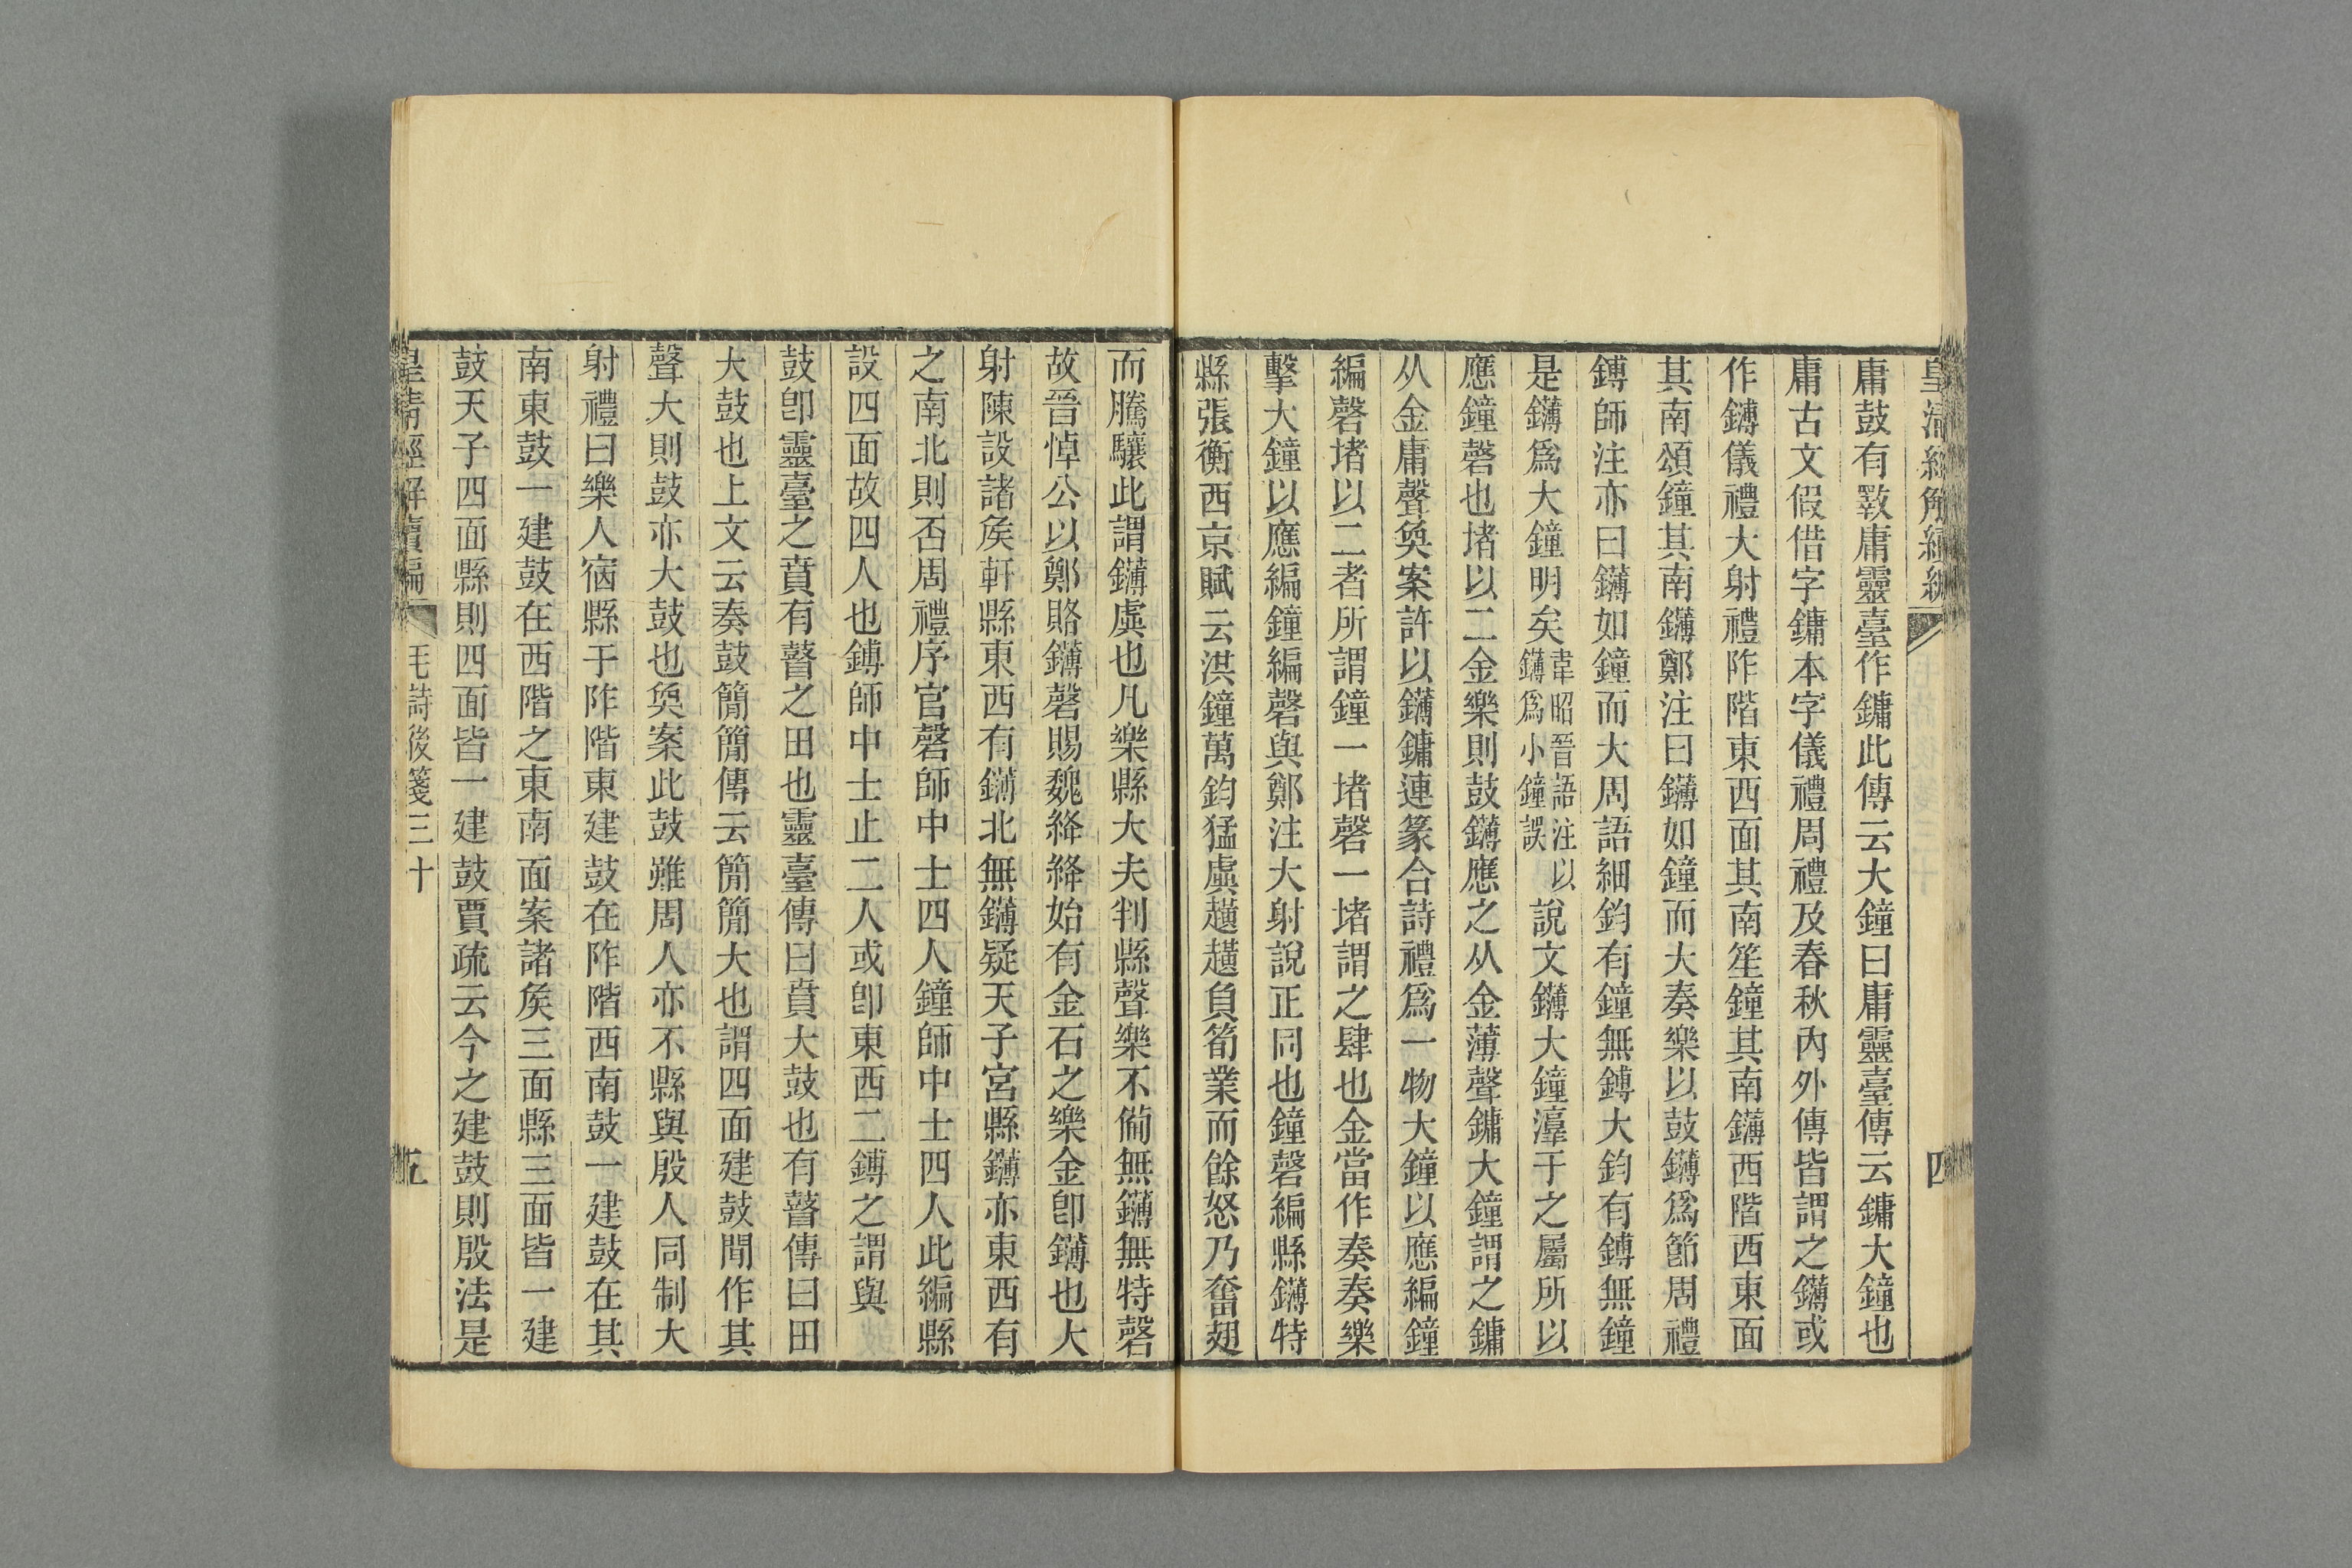 皇清經解續編 四
庸鼓有斁庸靈臺作鏞此傳云大鐘曰庸靈臺傳云鏞大鐘也
庸古文假借字鏞本字儀禮周禮及春秋內外傳皆謂之鑮或
作鏄儀禮大射禮阼階東西面其南笙鐘其南鑮西階西東面
其南頌鐘其南鑮鄭注曰鑮如鐘而大奏樂以鼓鑮爲節周禮
鏄師注亦曰鑮如鐘而大周語細鈞有鐘無鏄大鈞有鏄無鐘
是鑮爲大鐘明矣韋昭晉語注以鑮爲小鐘誤說文鑮大鐘淳于之屬所以
應鐘磬也堵以二金樂則鼓鑮應之从金薄聲鏞大鐘謂之鏞
从金庸聲奐案許以鑮鏞連篆合詩禮爲一物大鐘以應編鐘
編磬堵以二者所謂鐘一堵磬一堵謂之肆也金當作奏奏樂
擊大鐘以應編鐘編磬與鄭注大射說正同也鐘磬編縣鑮特
縣張衡西京賦云洪鐘萬鈞猛虡趪趪負筍業而餘怒乃奮翅
而騰驤此謂鑮虡也凡樂縣大夫判縣聲樂不備無鑮無特磬
故晉悼公以鄭賂鑮磬賜魏絳絳始有金石之樂金卽鑮也大
射陳設諸矦軒縣東西有鑮北無鑮疑天子宮縣鑮亦東西有
之南北則否周禮序官磬師中士四人鐘師中士四人此編縣
設四面故四人也鏄師中士止二人或卽東西二鏄之謂與
鼓卽靈臺之賁有瞽之田也靈臺傳曰賁大鼓也有瞽傳曰田
大鼓也上文云奏鼓簡簡傳云簡簡大也謂四面建鼓閒作其
聲大則鼓亦大鼓也奐案此鼓雖周人亦不縣與殷人同制大
射禮曰樂人宿縣于阼階東建鼓在阼階西南鼓一建鼓在其
南東鼓一建鼓在西階之東南面案諸矦三面縣三面皆一建
鼓天子四面縣則四面皆一建鼓賈疏云今之建鼓則殷法是
皇清經解續編 毛詩後箋三十 五